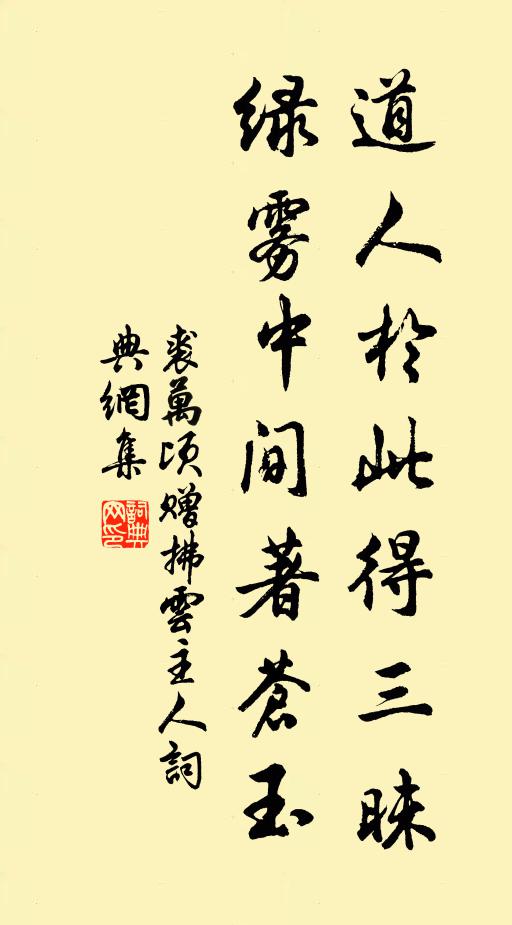 道人於此得三昧
緑雾中間著蒼玉
裘萬頃贈拂雲主人詞
典網集
詞典
网印